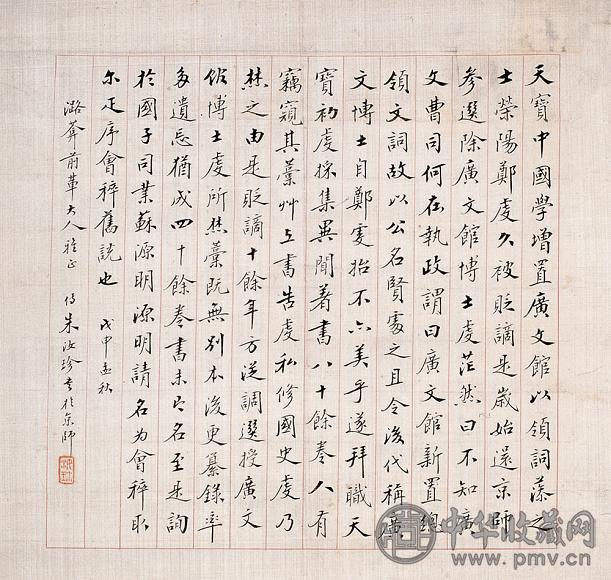 天寶中國學增置廣文館以領詞藻之
士滎陽鄭虔久被貶謫是歲始還京師
參選除廣文館博士虔茫然曰不知廣
文曹司何在執政謂曰廣文館新置總
領文詞故以公名賢處之且令後代稱廣
文博士自鄭虔始不亦美乎遂拜職天
寶初虔採集異聞著書八十餘卷人有
竊窺其藁艸上書告虔私修國史虔乃
焚之由是貶謫十餘年方從調選授廣文
館博士虔所焚藁既無別本後更纂錄率
多遺忘猶成四十餘卷書未有名至是詢
於國子司業蘇源明源明請名為會稡取
尔疋序會稡舊說也 戊申孟秋
潞葊前輩大人雅正
侍朱汝珍書於京師
中华收藏网
www.pmv.cn